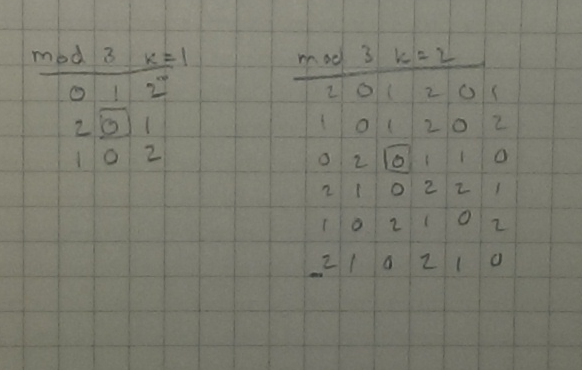 mod 3 k=1
0 1 2
2 0 1
1 0 2
mod 3 k=2
2 0 1 2 0 1
1 0 1 2 0 2
0 2 0 1 1 0
2 1 0 2 2 1
1 0 2 1 0 2
2 1 0 2 1 0